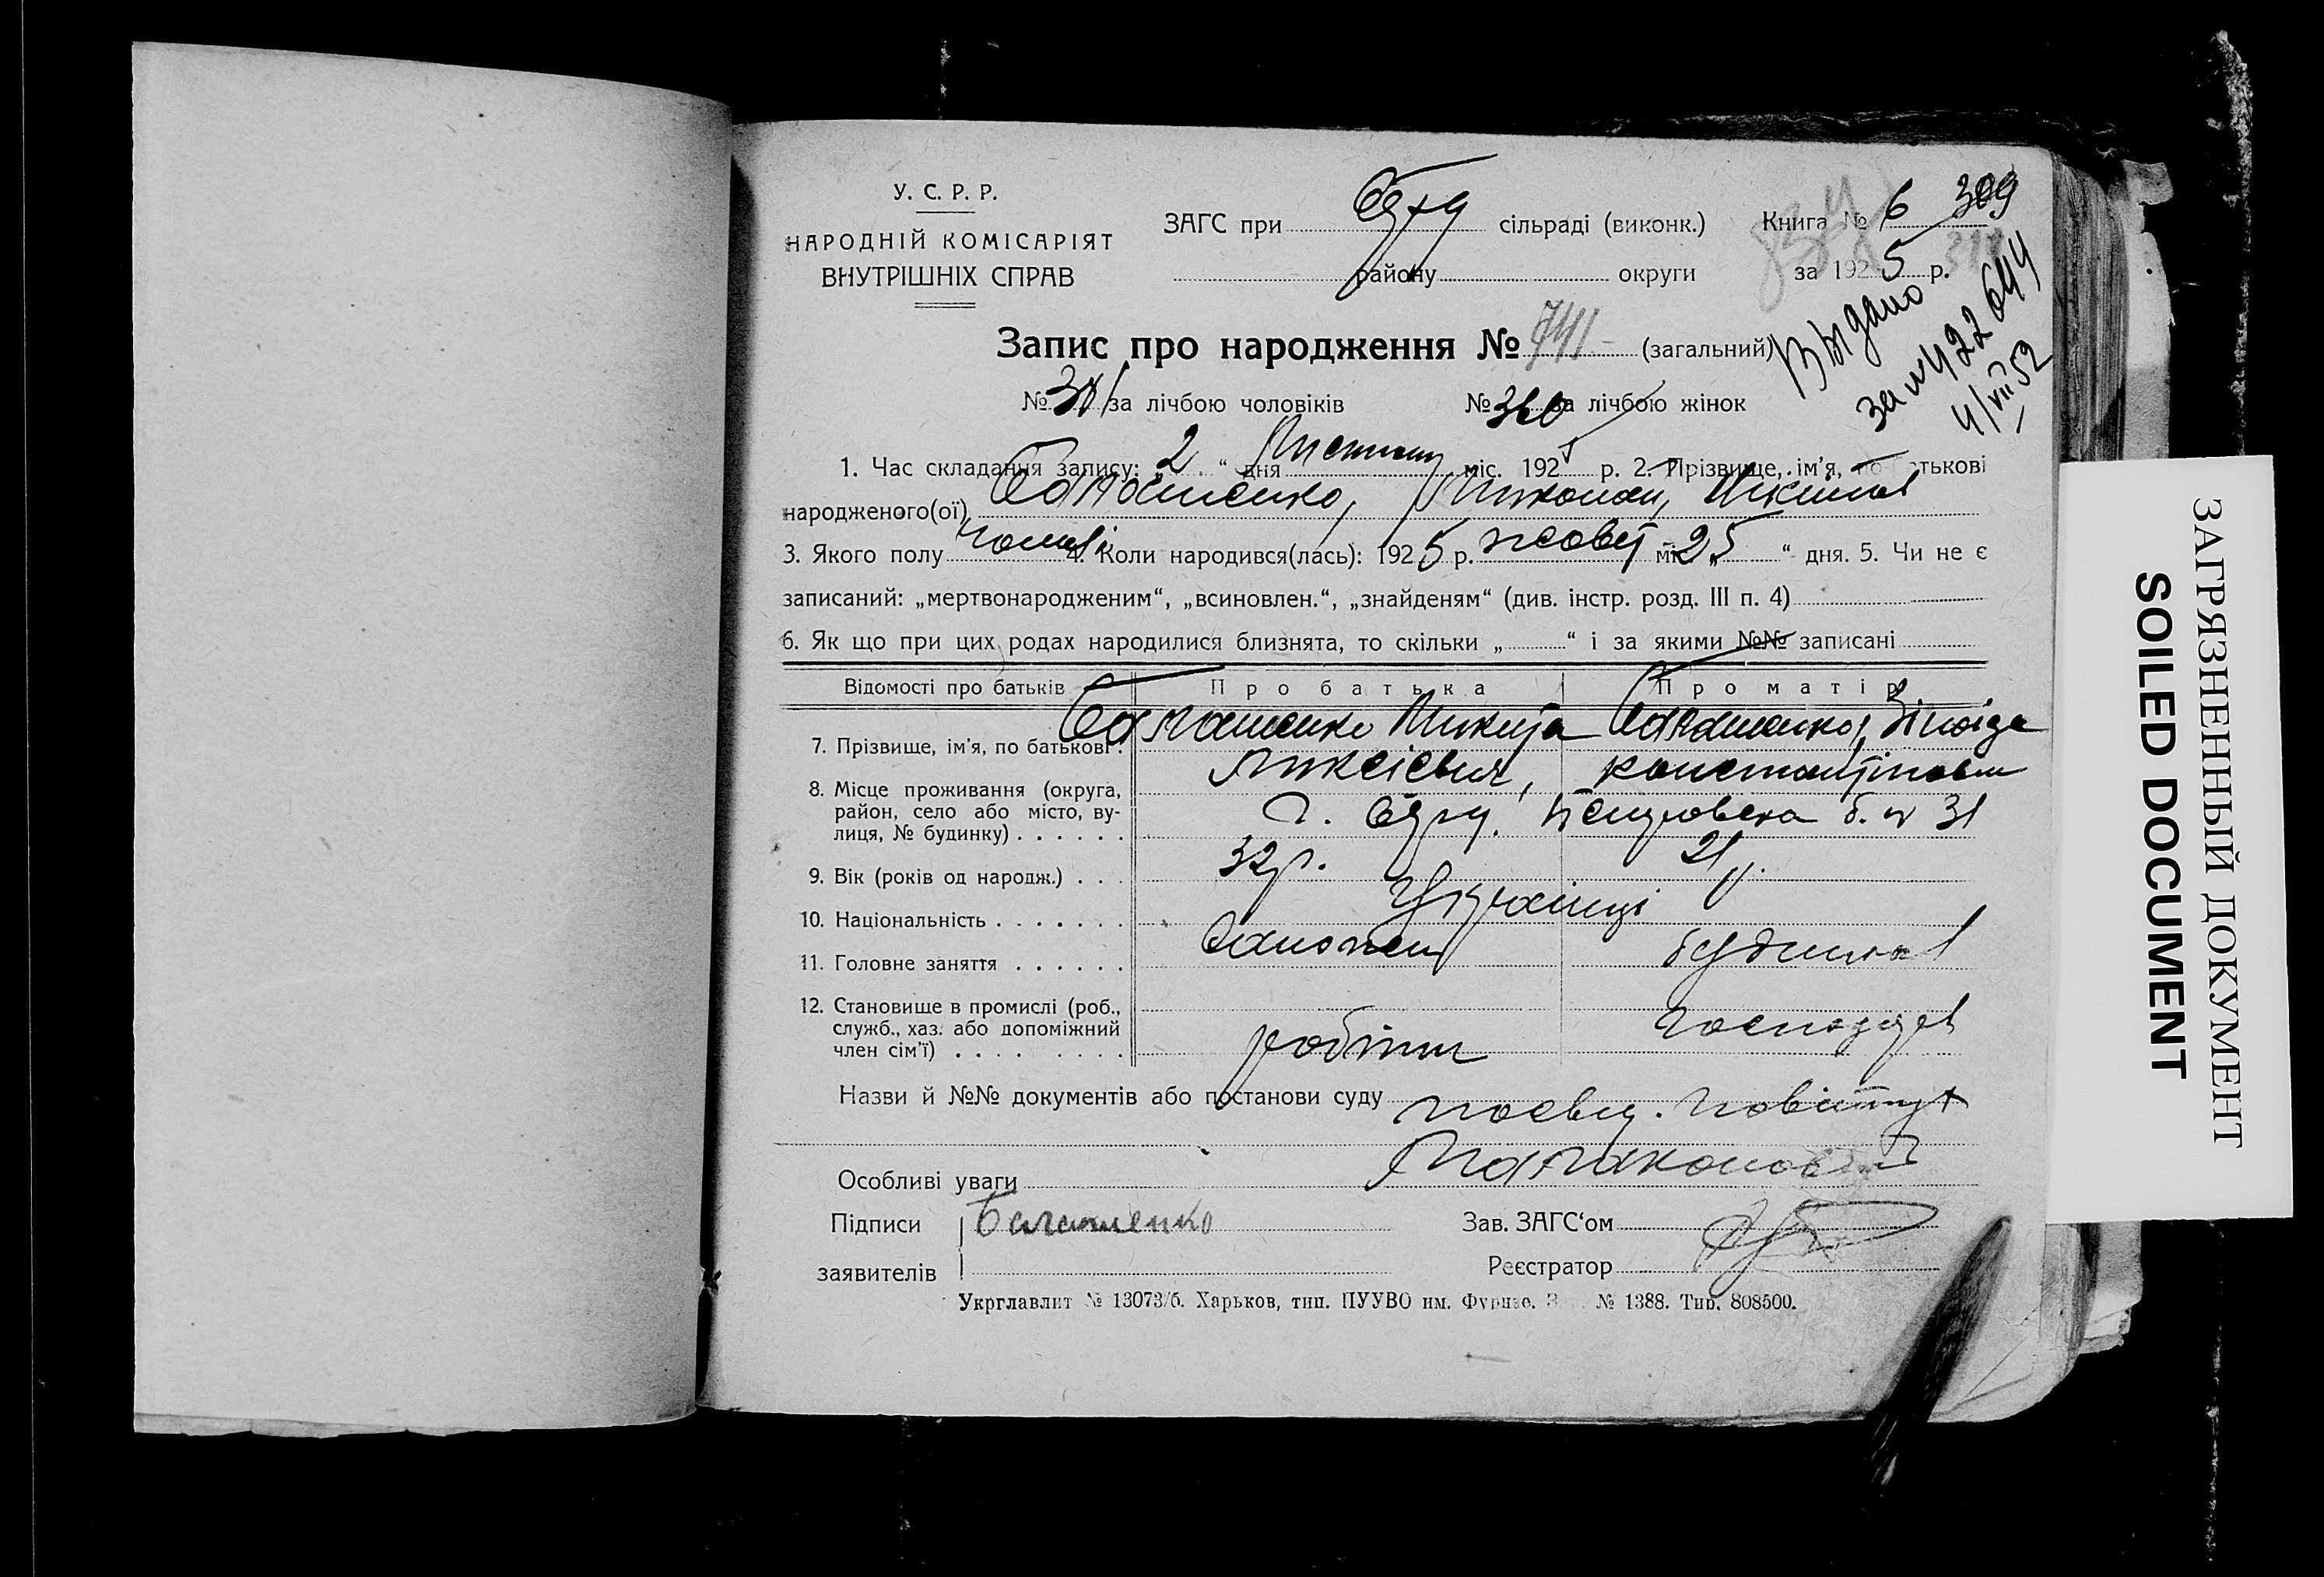 У. С. Р. Р.
НАРОДНІЙ КОМІСАРІЯТ
ВНУТРІШНІХ СПРАВ
ЗАГС при сільраді (виконк.)
району округи
Книга № 6 309
за 1925 р.
Видано
за № 422644
4/VII 52
Запис про народження № 741 (загальний)
№ 381 за лічбою чоловіків № 360 за лічбою жінок
1. Час складання запису: „ 2 “ дня Листопаду міс. 1925 р. 2. Прізвище, ім'я, по батькові
народженого(ої) Балашенко, Микола, Микитов
3. Якого полу чолов. 4. Коли народився(лась): 1925 р. жовт міс. „ 25 “ дня. 5. Чи не є
записаний: „мертвонародженим“, „всиновлен.“, „знайденям“ (див. інстр. розд. III п. 4)
6. Як що при цих родах народилися близнята, то скільки „ “ і за якими №№ записані
Відомості про батьків Про батька Про матір
7. Прізвище, ім'я, по батькові . Балашенко Микита Балашенко, Зіноіда
Константіновна
8. Місце проживання (округа,
район, село або місто, ву-
лиця, № будинку) . . . . . . Петровська б. № 31
9. Вік (років од народж.) . . . 32 р. 21 р.
10. Національність . . . . . . . Українці
11. Головне заняття . . . . . .
12. Становище в промислі (роб.,
служб., хаз. або допоміжний
член сім'ї) . . . . . . . . робітн господар
Назви й №№ документів або постанови суду посвід.
Особливі уваги
Підписи Балашенко Зав. ЗАГС'ом
заявителів Реєстратор
Укрглавлит № 13073/б. Харьков, тип. ПУУВО им. Фрунзе. № 1388. Тир. 808500.
ЗАГРЯЗНЕННЫЙ ДОКУМЕНТ
SOILED DOCUMENT